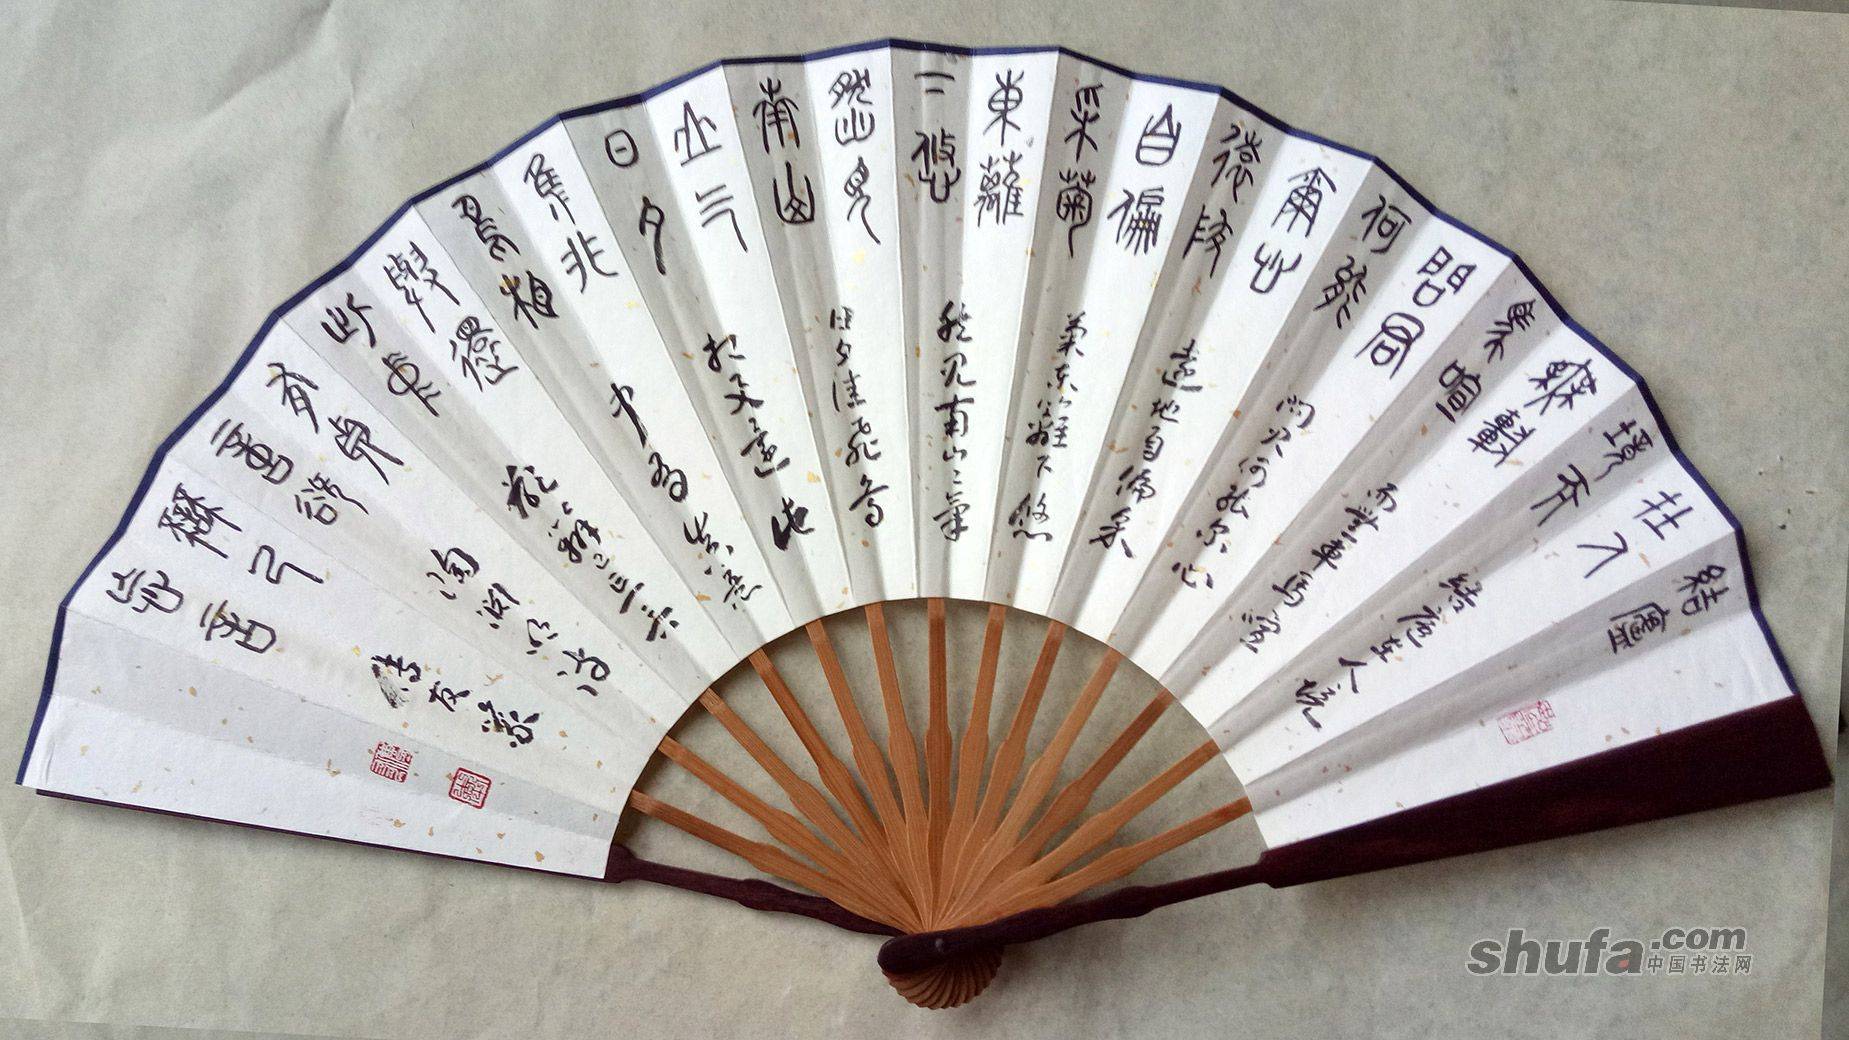 結廬
在人
境而
無車
馬喧
問君
何能
爾心
遠地
自偏
采菊
東籬
下悠
然見
南山
山气
日夕
隹飛
鳥相
與還
此中
有真
意欲
辨已
忘言
结庐在人境
而無車馬喧
问君何能尔心
遠地自偏采
菊东篱下悠
然见南山山氣
日夕佳飛鸟
相与還此
中有真意
欲辨已忘言
陶渊明诗
shufa.com
中国书法网